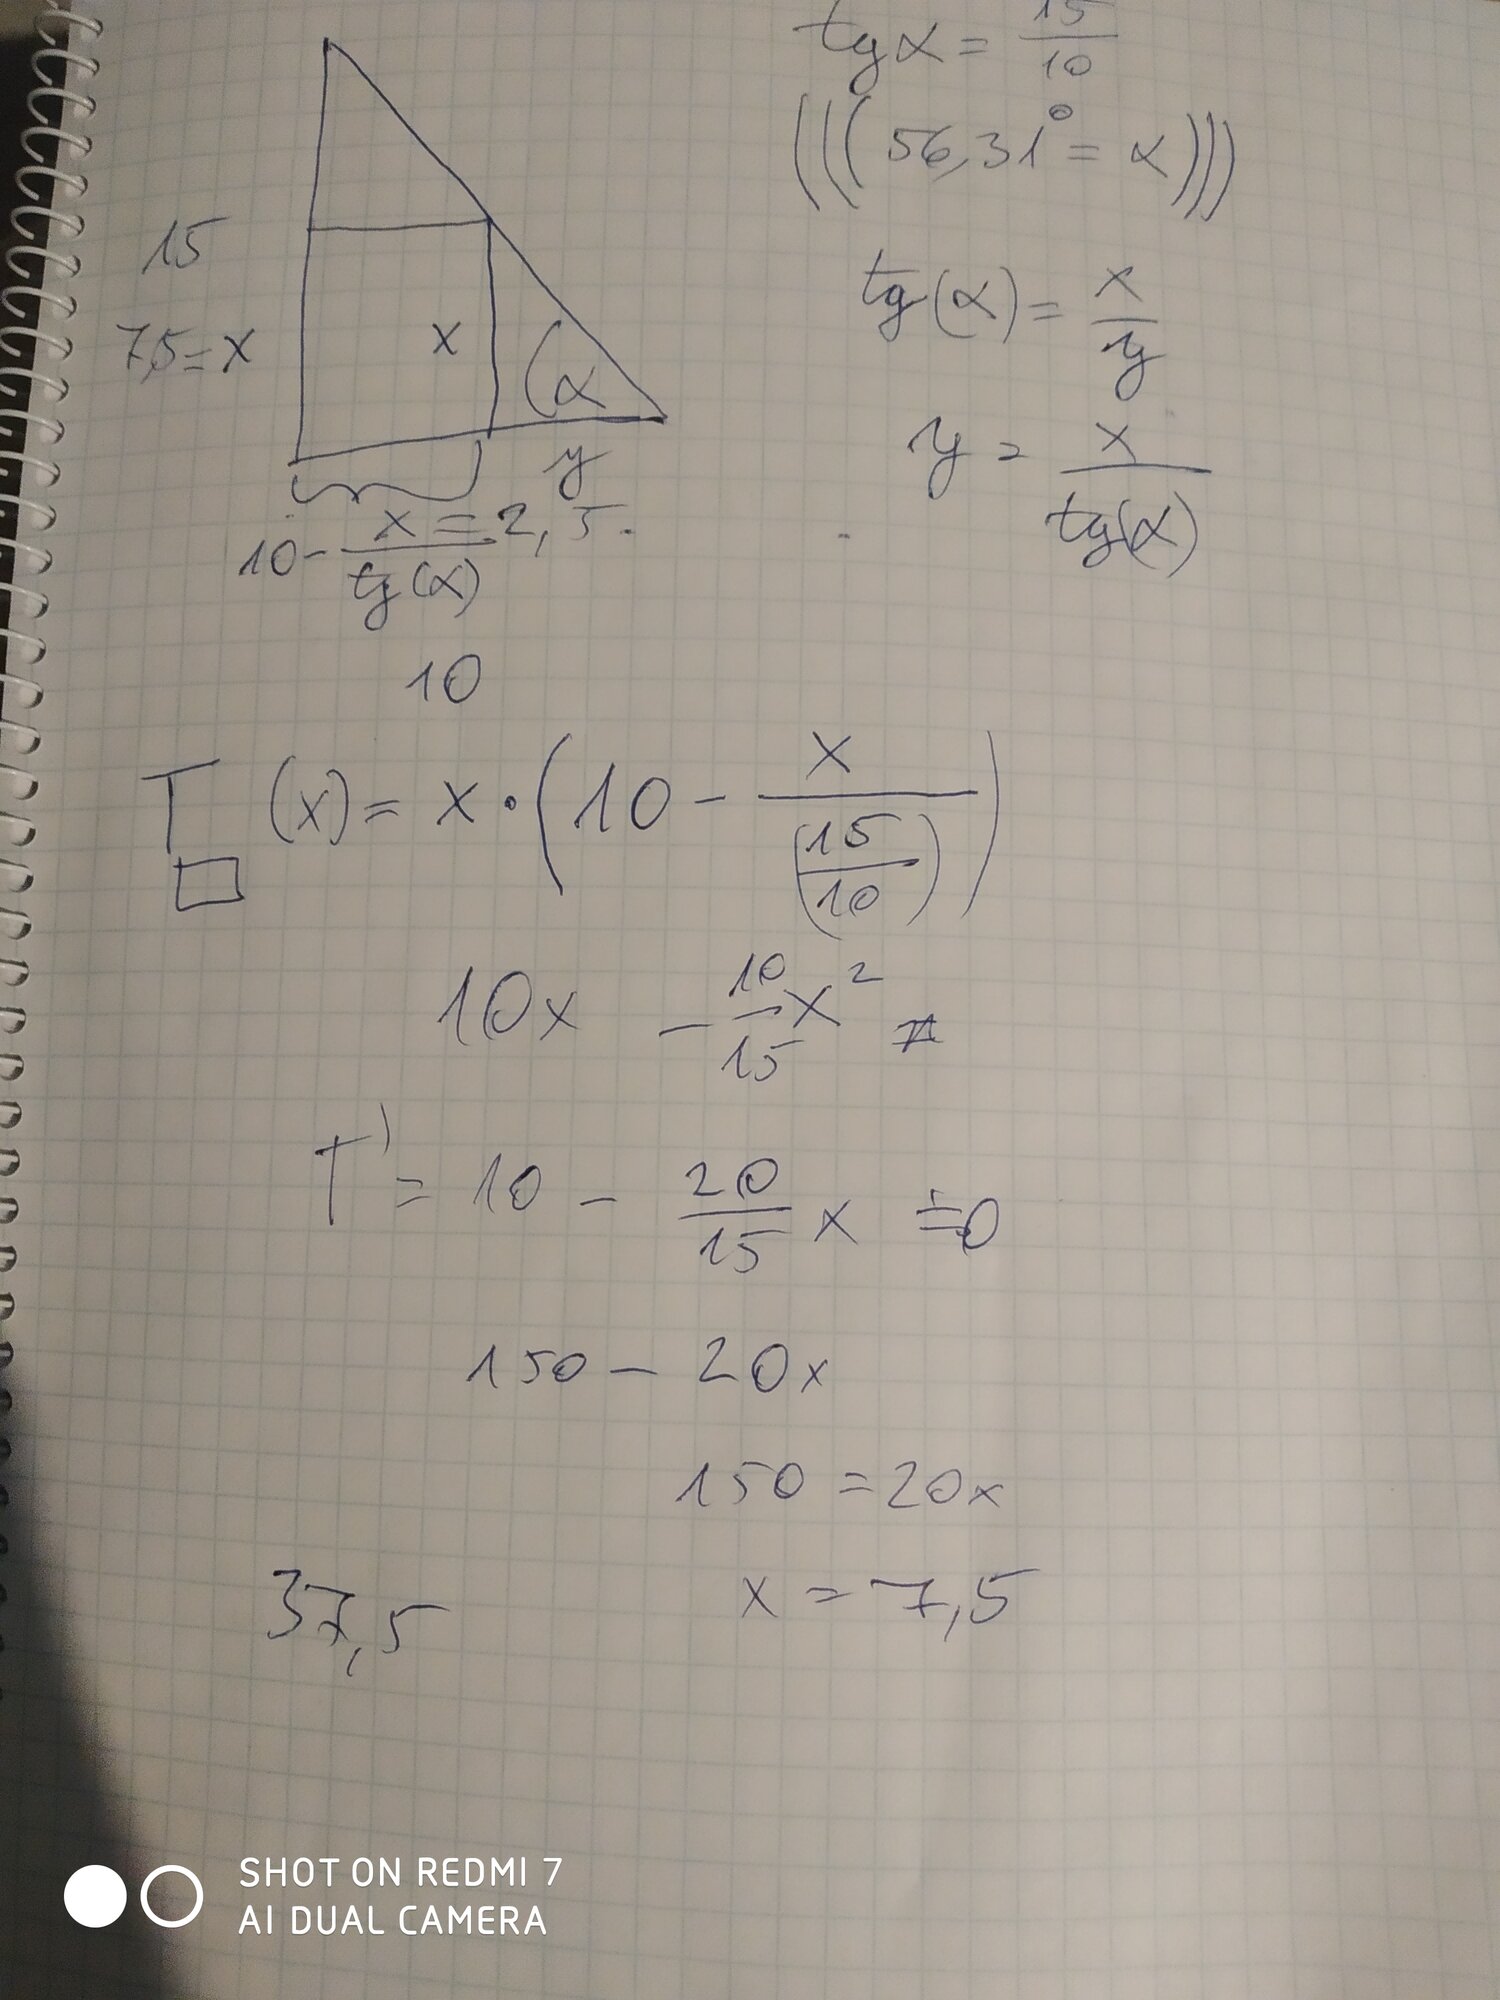 tgα = 15/10
(((56,31° = α)))
15
7,5 = x
x
α
y
10 - x/tg(α) = 2,5.
10
tg(α) = x/y
y = x/tg(α)
T□(x) = x · (10 - x/(15/10))
10x - 10/15 x²
T' = 10 - 20/15 x = 0
150 - 20x
150 = 20x
x = 7,5
37,5
SHOT ON REDMI 7
AI DUAL CAMERA